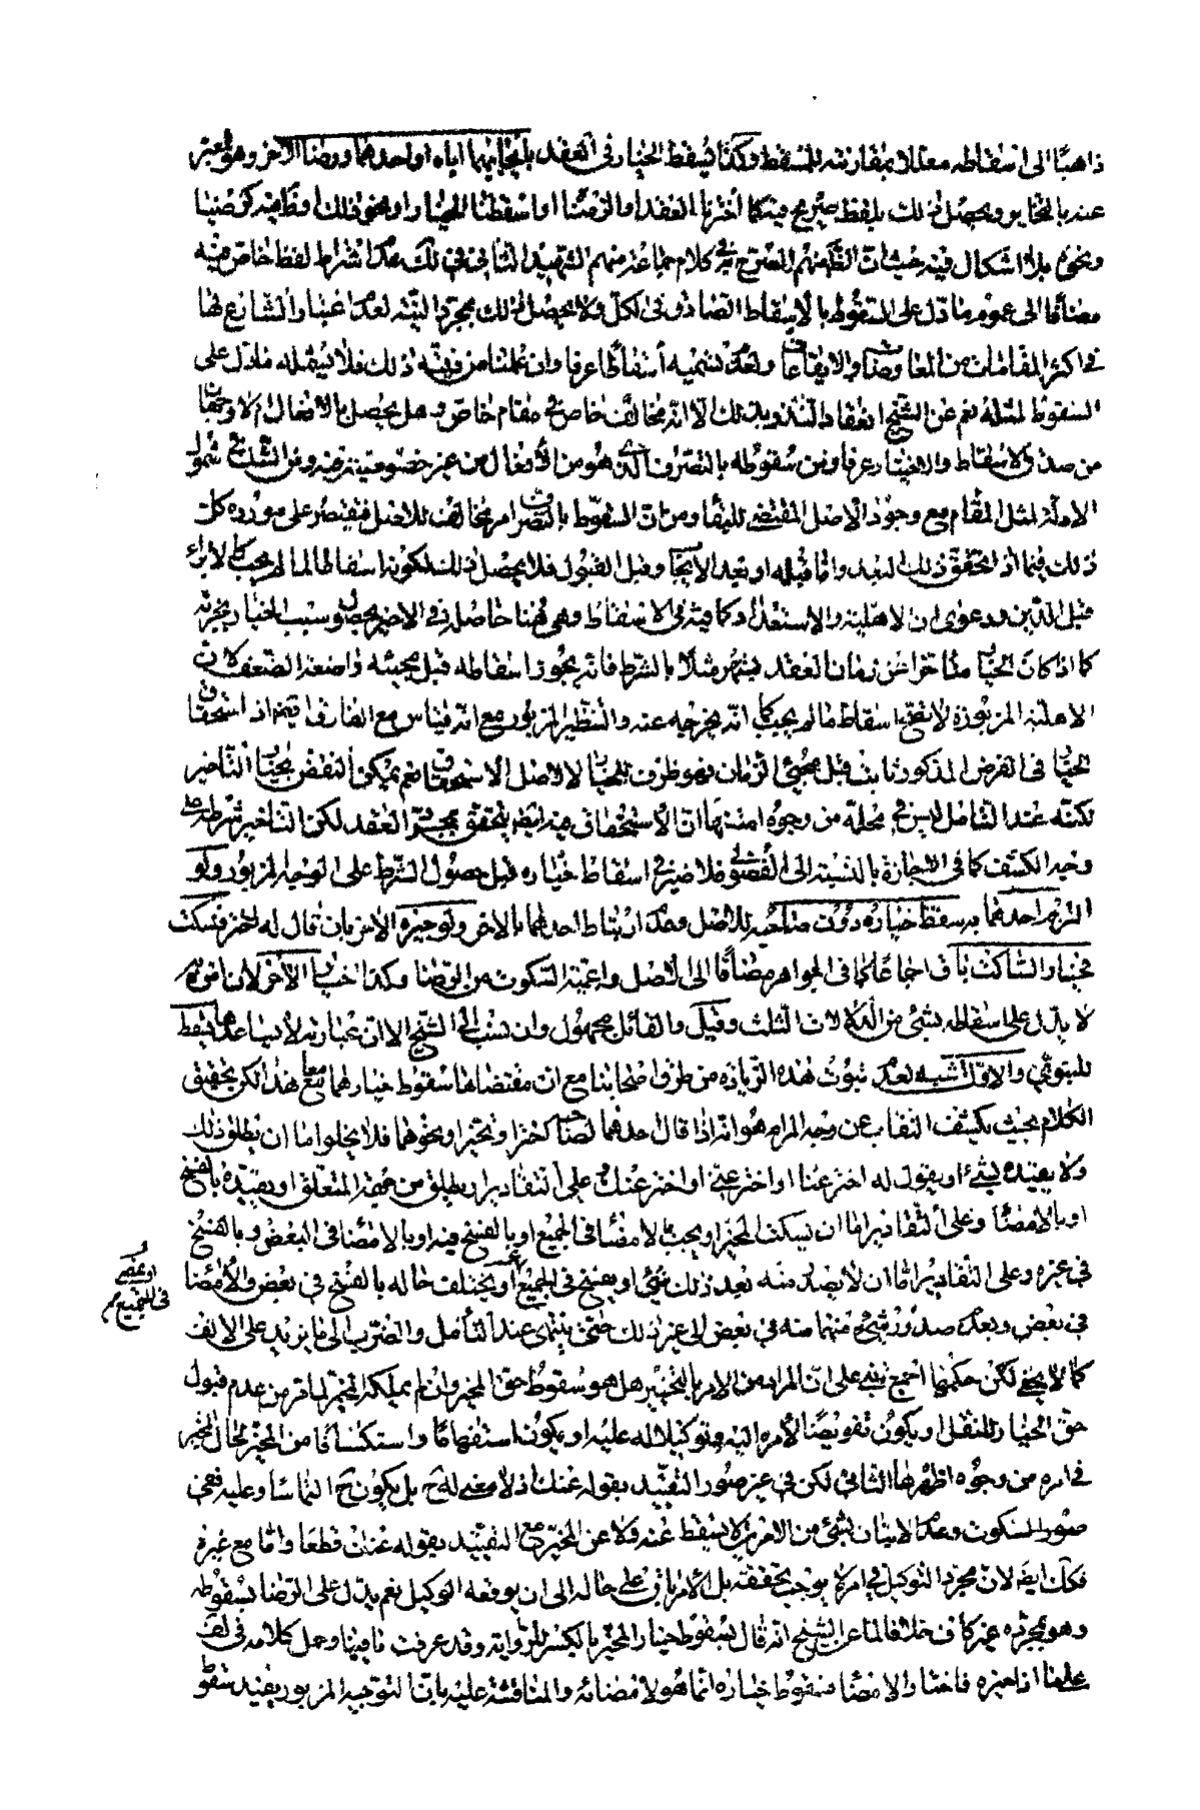 ذاهبًا الى اسقاطه معللا بمقارنته للمسقط وكذا يسقط الخيار في العقد بايجابهما اياه او احدهما ورضا الاخر وهو المعبر
عنه بالتخاير ويحصل ذلك بلفظ صريح فيه كما اخترنا العقد او الزمناه او اسقطنا الخيار او نحو ذلك او ظاهر فيه كرضينا
ونحوه بلا اشكال فيه حيث ان الظ منهم المصرح به في كلام جماعة منهم الشهيد الثاني في ذلك عدم اشتراط لفظ خاص فيه
مضافا الى عموم ما دل على السقوط بالاسقاط الصادق في الكل ولا يحصل ذلك بمجرد النية لعدم اعتبار الشارع لها
في اكثر المقامات من المعاوضات والايقاعات ولعدم تسميته اسقاطا عرفا وان علمنا من نيته ذلك فلا يشمله ما دل على
السقوط لمثله نعم عن الشيخ انعقاد النذر بذلك الا انه مخالف خاص في مقام خاص وهل يحصل بالافعال ام لا وجهان
من صدق الاسقاط والاختيار عرفا ومن سقوطه بالتصرف الذي هو من الافعال من غير خصوصية فيه ومن الشك في شمول
الادلة لمثل المقام مع وجود الاصل المقتضي للبقاء ومن ان السقوط بالتصرف امر مخالف للاصل فيقتصر على مورده كل
ذلك فيما اذا تحقق ذلك البعد واما قبله او بعد الايجاب وقبل القبول فلا يحصل ذلك لكونه اسقاطا لما لم يجب كالابراء
قبل الدين ودعوى ان الاهلية والاستعداد كافية في الاسقاط وهي هنا حاصلة في الاخير بحصول سبب الخيار بجزئه
كما اذا كان الخيار متاخرا عن زمان العقد فيثمر مثلا بالشرط فانه يجوز اسقاطه قبل مجيئه واضحة الضعف لان
الاهلية المزبورة لا تصحح اسقاط ما لم يجب كما انه يخرجه عنه والتنظير المزبور مع انه قياس مع الفارق ايضا اذ استحقاق
الخيار في الفرض المذكور ثابت قبل مجيئ الزمان فهو ظرف للخيار لا لاصل الاستحقاق نعم يمكن النقض بخيار التاخير
لكنه عند التامل ليس في محله من وجوه امتنها ان الاستحقاق فيه ايضا يتحقق بمجرد العقد لكن التاخير شرط له على
وجه الكشف كما في الاجازة بالنسبة الى الفضولي فلا ضير في اسقاط خياره قبل حصول الشرط على الوجه المزبور ولو
التزم احدهما به سقط خياره دون صاحبه للاصل وعدم ارتباط احدهما بالاخر ولو خيره الاخر بان قال له اختر فسكت
فخيار الساكت باق اجماعا كما في الجواهر مضافًا الى الاصل واعمية السكوت من الرضا وكذا خيار الاخر لان امره
لا يدل على اسقاطه بشئ من الدلالات الثلث وقيل والقائل مجهول وان نسب الى الشيخ الا ان عبارته لا تساعدها يسقط
للنبوي والاول اشبه لعدم ثبوت هذه الزيادة من طرف اصحابنا مع ان مقتضاها سقوط خيارهما معا هذا لكن تحقيق
الكلام بحيث يكشف النقاب عن وجه المرام هو انه اذا قال احدهما لصاحبه اختر او تخير او نحوهما فلا يخلو اما ان يطلق ذلك
ولا يقيده بشئ او يقول له اختر عنا او اختر عني او اختر عنك وعلى التقادير اما يطلق من جهة المتعلق او يقيده بالفسخ
او بالامضاء وعلى التقادير اما ان يسكت المخير او يجيب بالامضاء في الجميع او بالفسخ فيه او بالامضاء في البعض وبالفسخ
في غيره وعلى التقادير اما ان لا يصدر منه بعد ذلك شئ او يفسخ في الجميع او يختلف حاله بالفسخ في بعض والامضاء
او يمضي
في الجميع صح
في بعض وبعدم صدور شئ منهما منه في بعض الى غير ذلك حتى ينتهي عند التامل والضرب الى ما يزيد على الالف
كما لا يخفى لكن حكمها اجمع يبنى على ان المراد من الامر بالتخيير هل هو سقوط حق المخير وان لم يملكه المخير لما مر من عدم قبول
حق الخيار للنقل او يكون تفويضًا لأمره اليه وتوكيلا له عليه او يكون استفهاما واستكشافا من المخير لحال المخير
في امره من وجوه اظهرها الثاني لكن في غير صور التقييد بقوله عنك اذ لا معنى له ح بل يكون ح التماسا وعليه ففي
صورة السكوت وعدم الاتيان بشئ من الامرين لا يسقط عنه ولا عن المخير مع التقييد بقوله عنك قطعا واما مع غيره
فكك ايضا لان مجرد التوكيل في امر لا يوجب تحققه بل الامر باق على حاله الى ان يوقعه الوكيل نعم يدل على الرضا بسقوطه
وهو بمجرده غير كاف خلافا لما عن الشيخ انه قال بسقوط خيار المخير بالكسر للرواية وقد عرفت ما فيها وحمل كلامه في لف
على ما اذا خيره فاختار الامضاء فسقوط خياره انما هو لامضائه والمناقشة عليه بان التوجيه المزبور يفيد سقوط